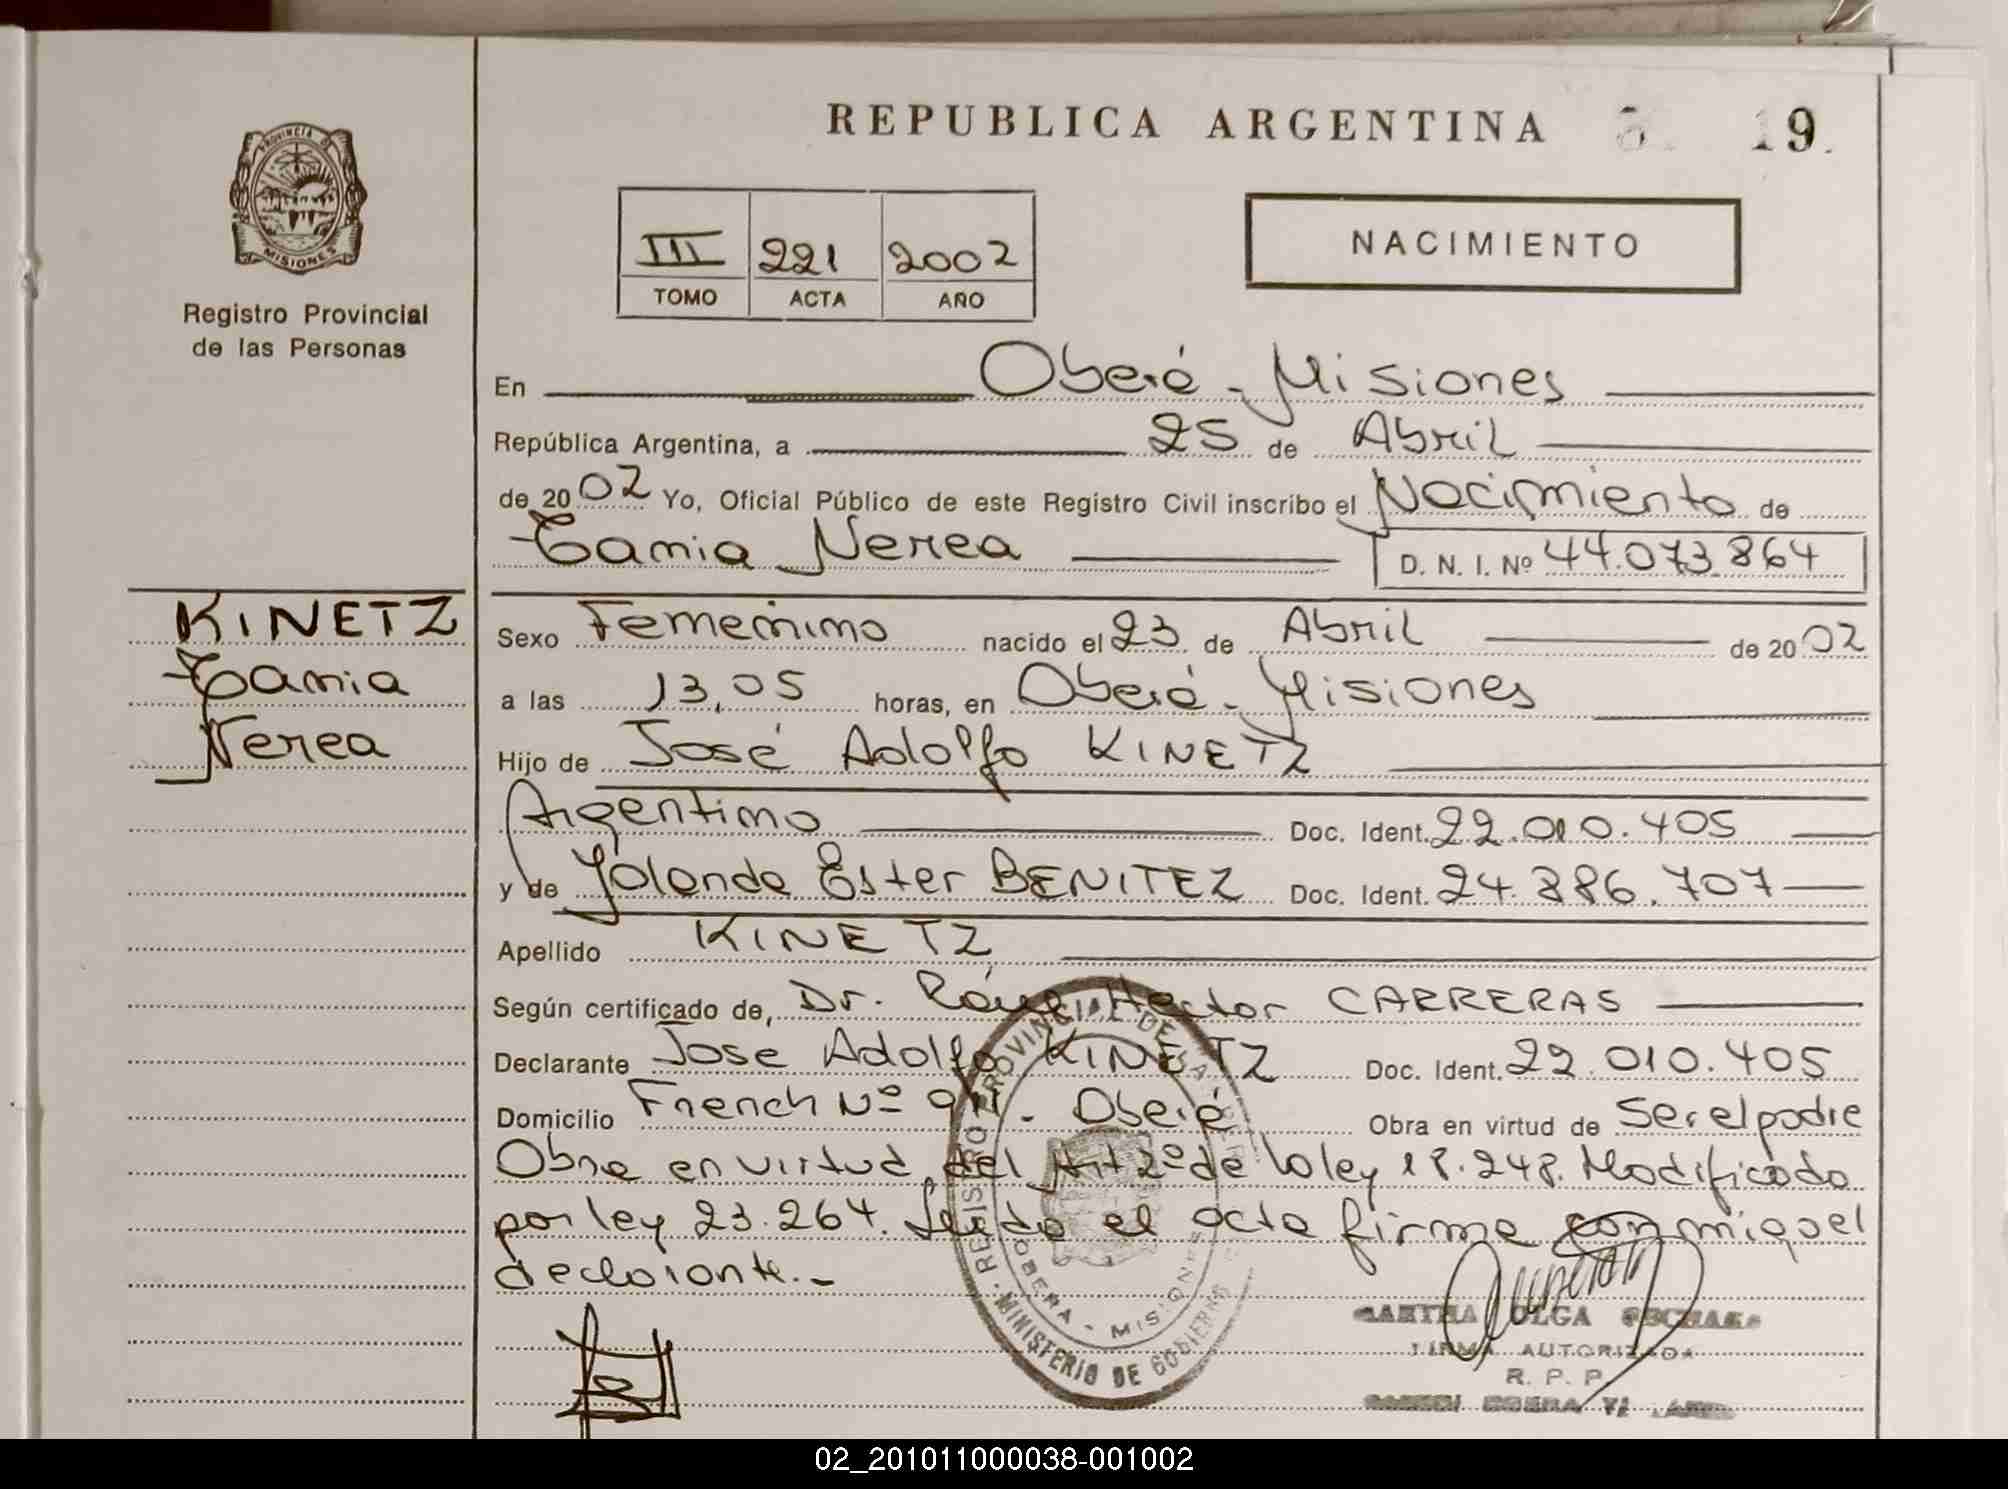 REPUBLICA ARGENTINA 19.
PROVINCIA DE
MISIONES
Registro Provincial
de las Personas
III 221 2002
TOMO ACTA AÑO
NACIMIENTO
En Oberá - Misiones
República Argentina, a 25 de Abril
de 2002 Yo, Oficial Público de este Registro Civil inscribo el Nacimiento de
Tamia Nerea D. N. I. Nº 44.073.864
KINETZ
Tamia
Nerea
Sexo Femenino nacido el 23 de Abril de 2002
a las 13,05 horas, en Oberá - Misiones
Hijo de José Adolfo KINETZ
Argentino Doc. Ident. 22.010.405
y de Yolanda Ester BENITEZ Doc. Ident. 24.886.707
Apellido KINETZ
Según certificado de, Dr. Hector CARRERAS
Declarante Jose Adolfo KINETZ Doc. Ident. 22.010.405
Domicilio French Nº - Oberá Obra en virtud de Ser el padre
Obra en virtud del Art 2º de la ley 18.248. Modificado
por ley 23.264. Leída el acta firma conmigo el
declarante.-
REGISTRO PROVINCIAL DE LAS
OBERA - MISIONES
MINISTERIO DE GOBIERNO
MARTHA OLGA
FIRMA AUTORIZADA
R. P. P.
02_201011000038-001002